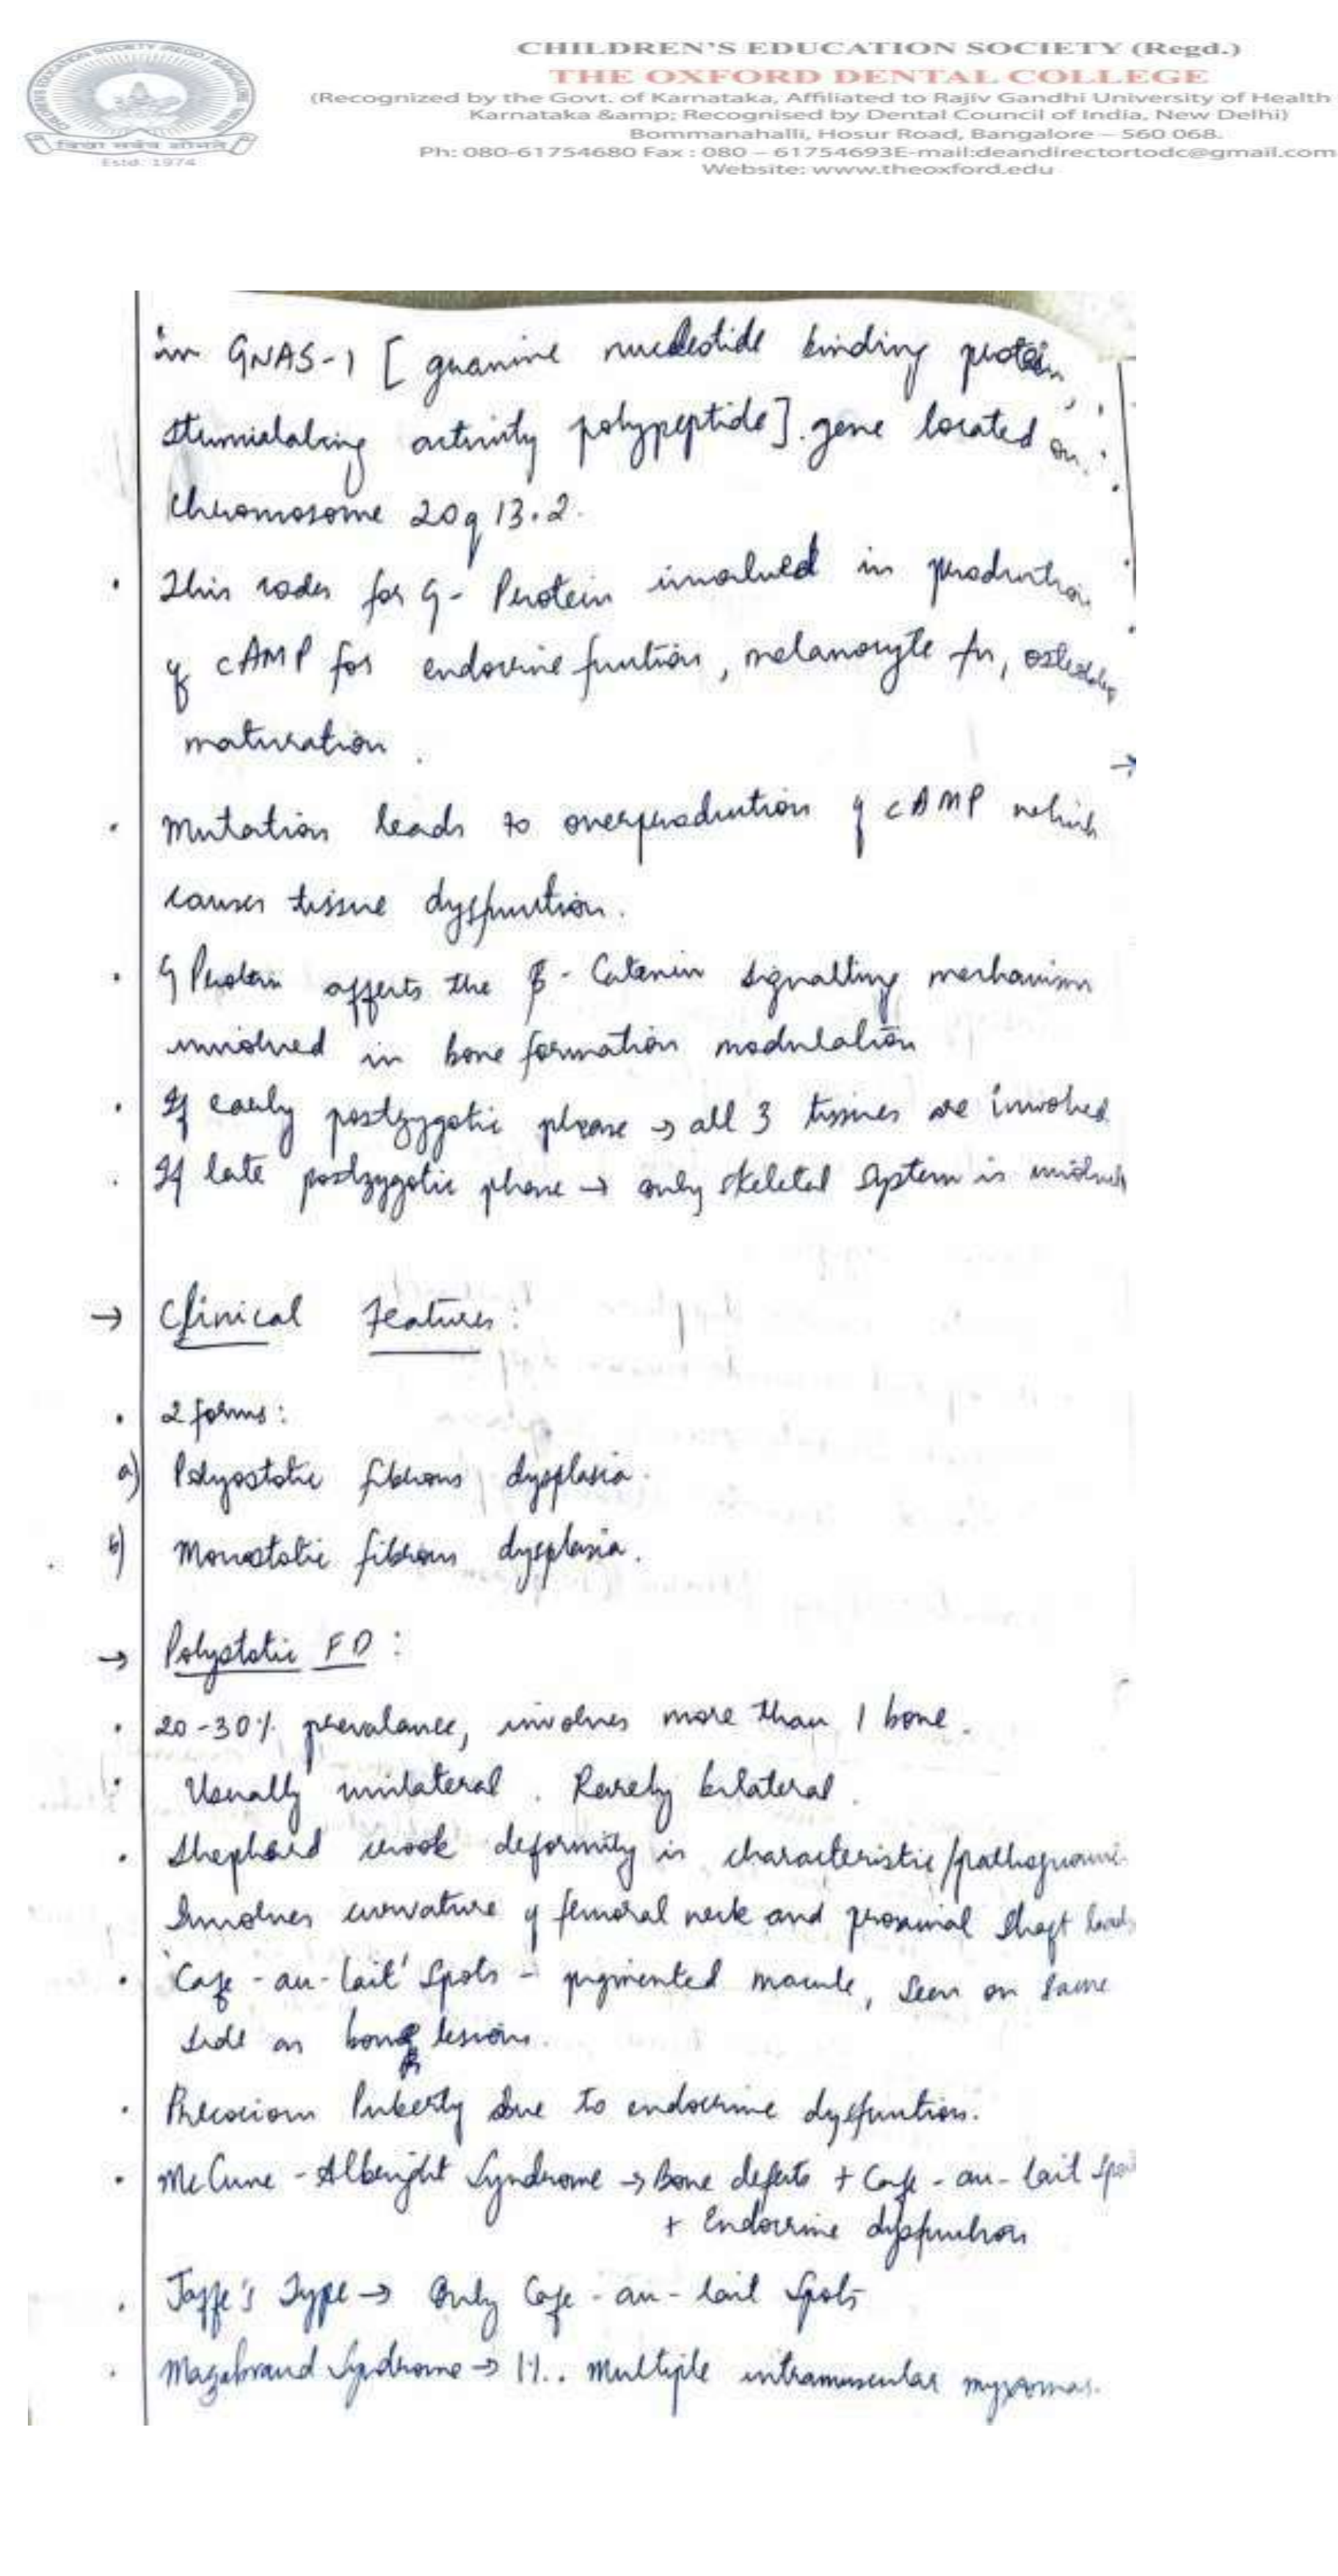 CHILDREN'S EDUCATION SOCIETY (Regd.)
THE OXFORD DENTAL COLLEGE
(Recognized by the Govt. of Karnataka, Affiliated to Rajiv Gandhi University of Health
Karnataka &amp; Recognised by Dental Council of India, New Delhi)
Bommanahalli, Hosur Road, Bangalore – 560 068.
Ph: 080-61754680 Fax : 080 – 61754693E-mail:deandirectortodc@gmail.com
Website: www.theoxford.edu
Estd: 1974
in GNAS-1 [ guanine nucleotide binding protein,
activity polypeptide]. gene located on
Chromosome 20q 13.2.
• This codes for G- Protein involved in production
of cAMP for endocrine function, melanocyte fn,
maturation.
• Mutation leads to overproduction of cAMP which
causes tissue dysfunction.
• G Protein affects the β- Catenin signalling mechanism
involved in bone formation modulation
• If early postzygotic phase → all 3 tissues are involved.
• If late postzygotic phase → only skeletal system is involved
→ Clinical Features:
• 2 forms:
a) Polyostotic fibrous dysplasia.
b) Monostotic fibrous dysplasia.
→ Polyostotic FD:
• 20-30% prevalance, involves more than 1 bone.
• Usually unilateral. Rarely bilateral.
• Shephard crook deformity is characteristic/pathognomi-
Involves curvature of femoral neck and proximal shaft
• 'Cafe-au-lait' Spots - pigmented macule, seen on same
side as bone lesion.
• Precocious Puberty due to endocrine dysfuntion.
• McCune-Albright Syndrome → Bone defects + Cafe-au-lait
+ Endocrine dysfunction
• Jaffe's Type → Only Cafe-au-lait Spots
• Mazabraud Syndrome → 1%. Multiple intramuscular myxomas.